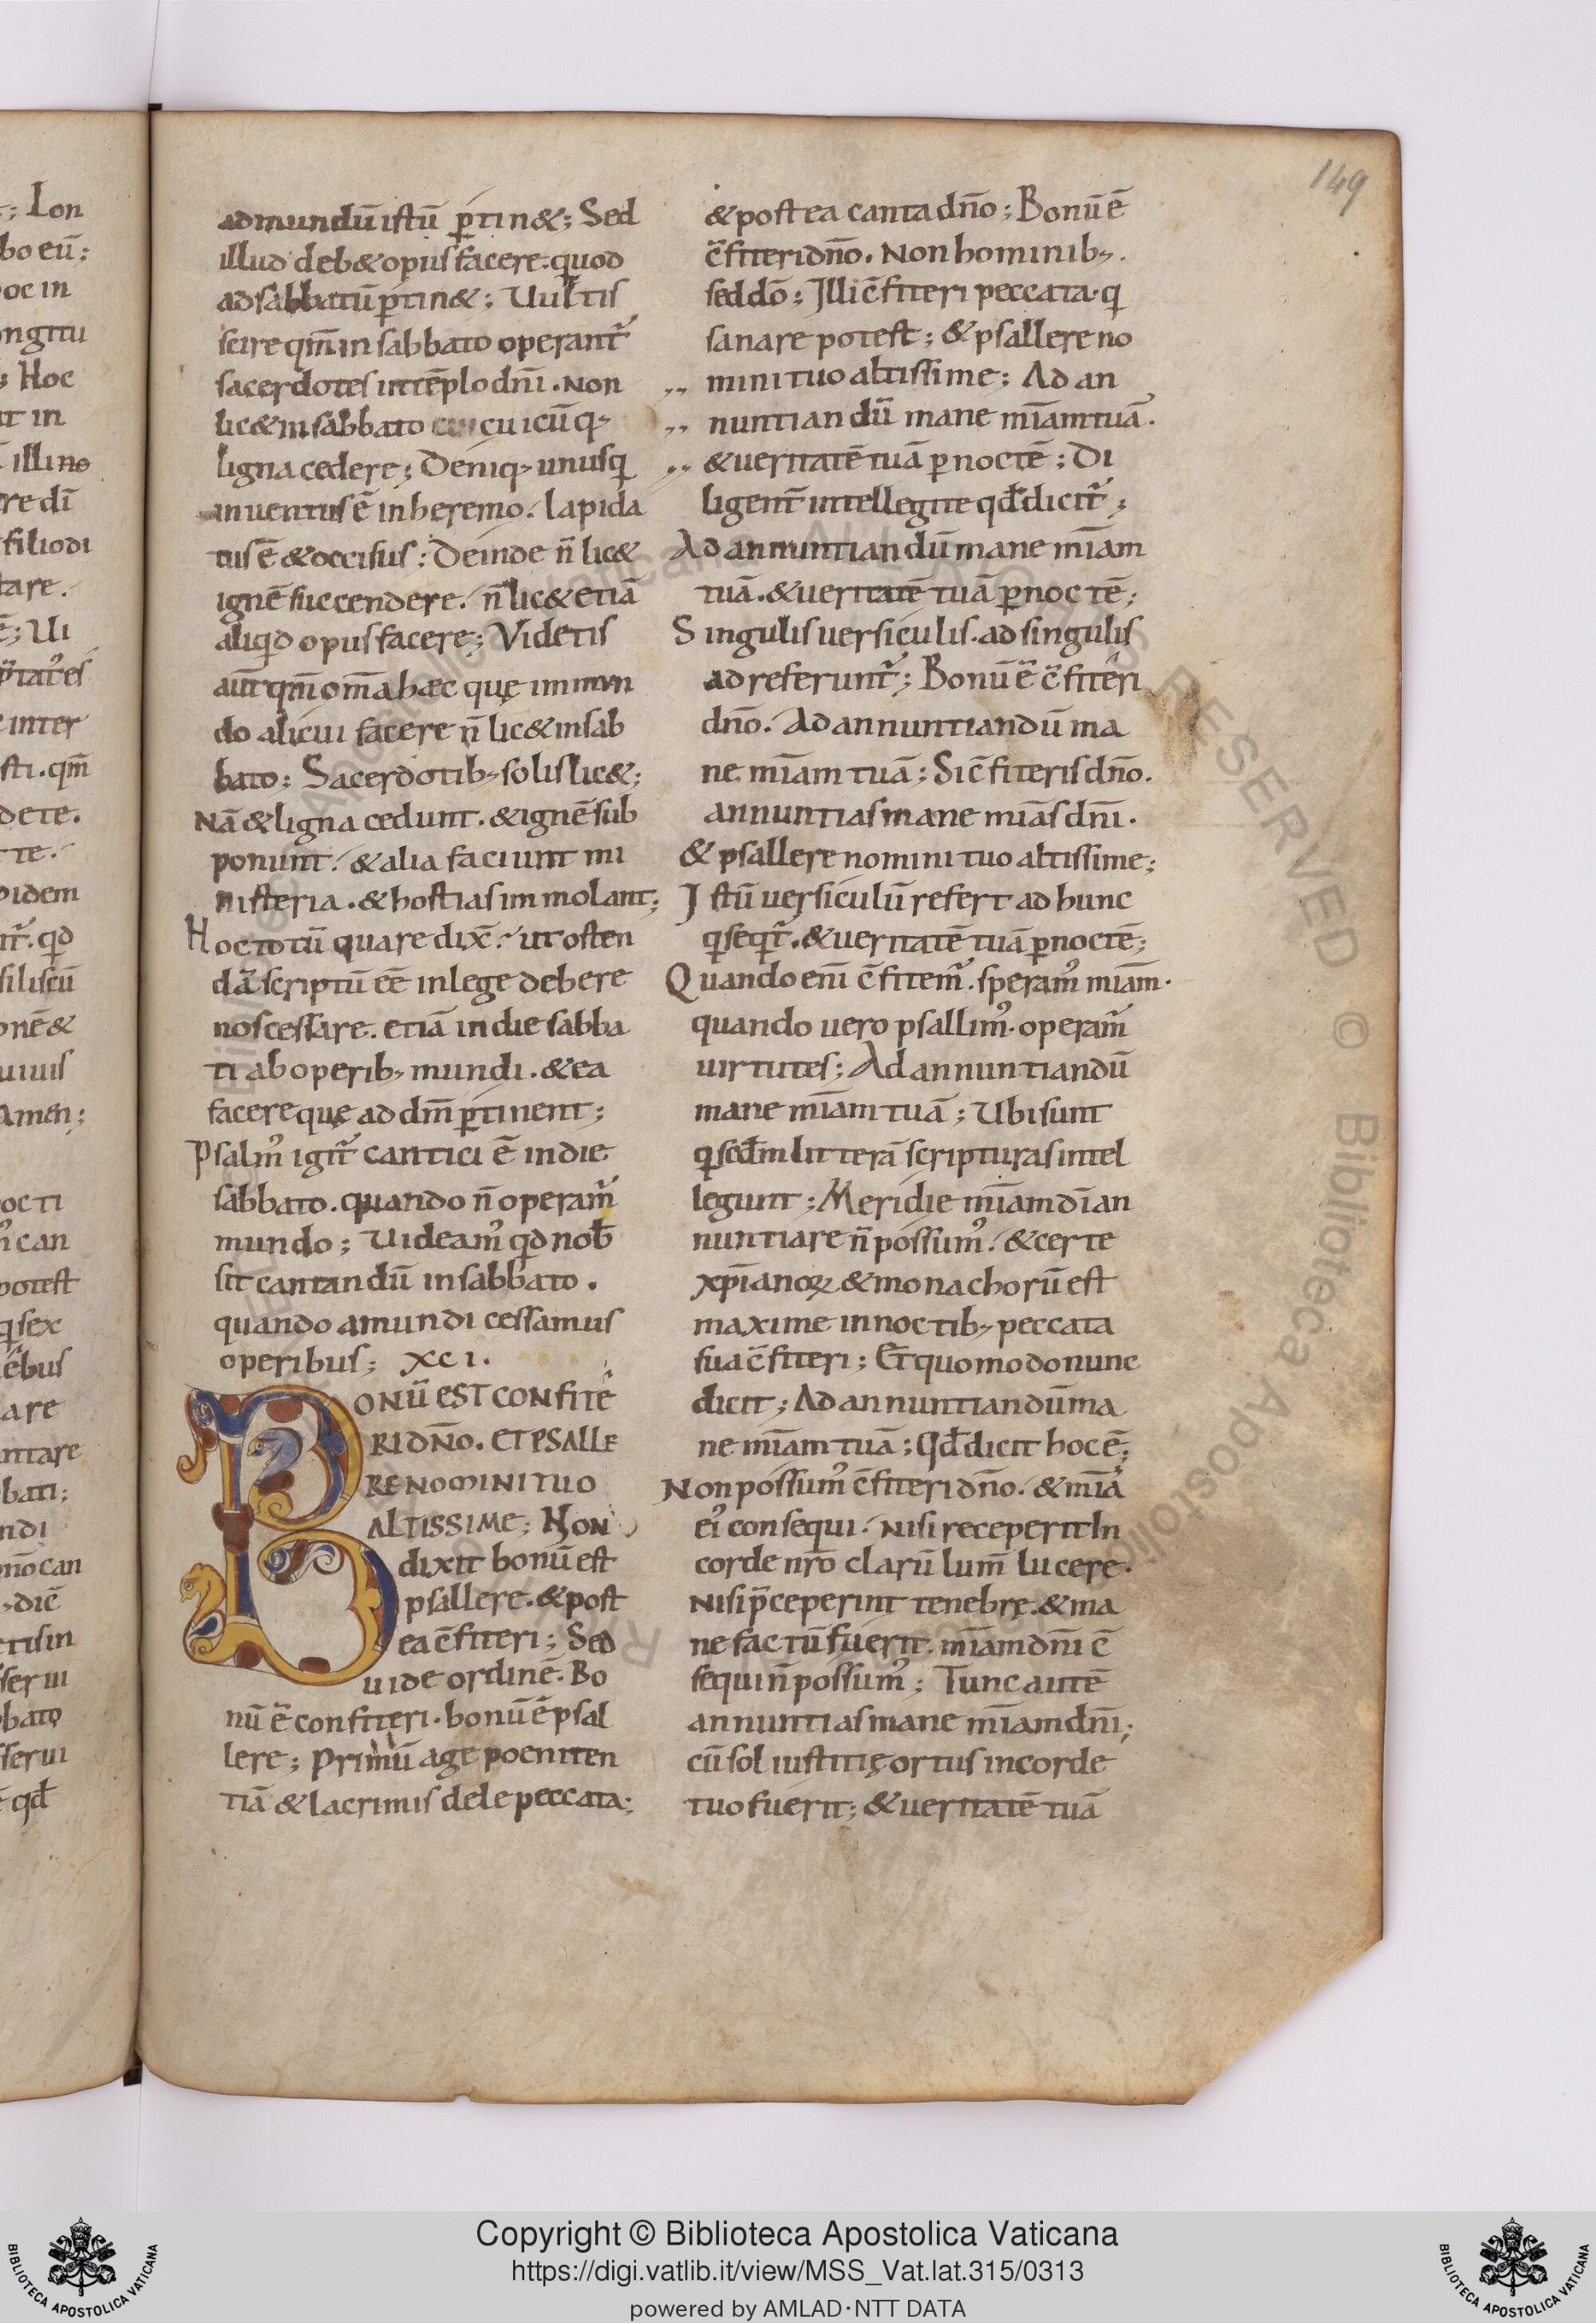 149
admundū istū ꝑtin&; Sed
illud deb& opus facere. quod
ad sabbatū ꝑtin&; Uultis
scire qm̄ in sabbato operant̄
sacerdotes in tēplo dnī. Non
lic& in sabbato cuicūq;
ligna cedere; Deniq; unusq
inuentus ē in heremo. lapida
tus ē & occisus; Deinde n̄ lic&
ignē succendere. n̄ lic& etiā
aliqid opus facere; Videtis
aut̄ qm̄ om̄a hæc quę in mun
do alicui facere n̄ lic& in sab
bato; Sacerdotib; solis lic&;
Nā & ligna cedunt. & ignē sub
ponunt. & alia faciunt mi
nisteria. & hostias immolant;
Hoc totū quare dix̄. ut osten
dā scriptū eē in lege debere
nos cessare. etiā in die sabba
ti ab operib; mundi. & ea
facere quę ad dm̄ ꝑtinent;
Psalm᾽ igit̄ cantici ē in die
sabbato. quando n̄ operam̄
mundo; Uideam᾽ qd nob̄
sit cantandū in sabbato.
quando a mundi cessamus
operibus; XCI.
BONŪ EST CONFITĒ
RI DN̄O. ET PSALLE
RE NOMINI TUO
ALTISSIME; Non
dixit bonū est
psallere. & post
ea c̄fiteri; Sed
uide ordinē. Bo
nū ē confiteri. bonū ē psal
lere; Primū age poeniten
tiā & lacrimis dele peccata;
& postea canta dn̄o; Bonū ē
c̄fiteri dn̄o. Non hominib;.
sed dō; Illi c̄fiteri peccata. q
sanare potest; & psallere no
mini tuo altissime; Ad an
nuntiandū mane mīam tuā.
& ueritatē tuā ꝑ noctē; Di
ligent̄ intellegite qd̄ dicit̄;
Ad annuntiandū mane mīam
tuā. & ueritatē tuā ꝑ noctē;
Singulis uersiculis. ad singulis
ad referunt̄; Bonū ē c̄fiteri
dn̄o. Ad annuntiandū ma
ne mīam tuā; Si c̄fiteris dn̄o.
annuntias mane mīas dnī.
& psallere nomini tuo altissime;
Istū uersiculū refert ad hunc
q seqt̄. & ueritatē tuā ꝑ noctē;
Quando enī c̄fitem̄. speram᾽ mīam.
quando uero psallim᾽. operam̄
uirtutes; Ad annuntiandū
mane mīam tuā; Ubi sunt
q sed̄m litterā scripturas intel
legunt; Meridie mīam dī an
nuntiare n̄ possum᾽. & certe
xp̄ianoꝝ & monachorū est
maxime in noctib; peccata
sua c̄fiteri; Et quomodo nunc
dicit; Ad annuntiandū ma
ne mīam tuā; Qd̄ dicit hoc ē;
Non possum᾽ c̄fiteri dn̄o. & mīā
ei᾽ consequi. Nisi receperit In
corde nr̄o clarū lum̄ lucere.
Nisi p̄ceperint tenebrę. & ma
ne factū fuerit. mīam dnī c̄
sequi n̄ possum᾽; Tunc autē
annuntias mane mīam dnī;
cū sol iustitię ortus in corde
tuo fuerit; & ueritatē tuā
Copyright © Biblioteca Apostolica Vaticana
https://digi.vatlib.it/view/MSS_Vat.lat.315/0313
powered by AMLAD·NTT DATA
BIBLIOTECA APOSTOLICA VATICANA
BIBLIOTECA APOSTOLICA VATICANA